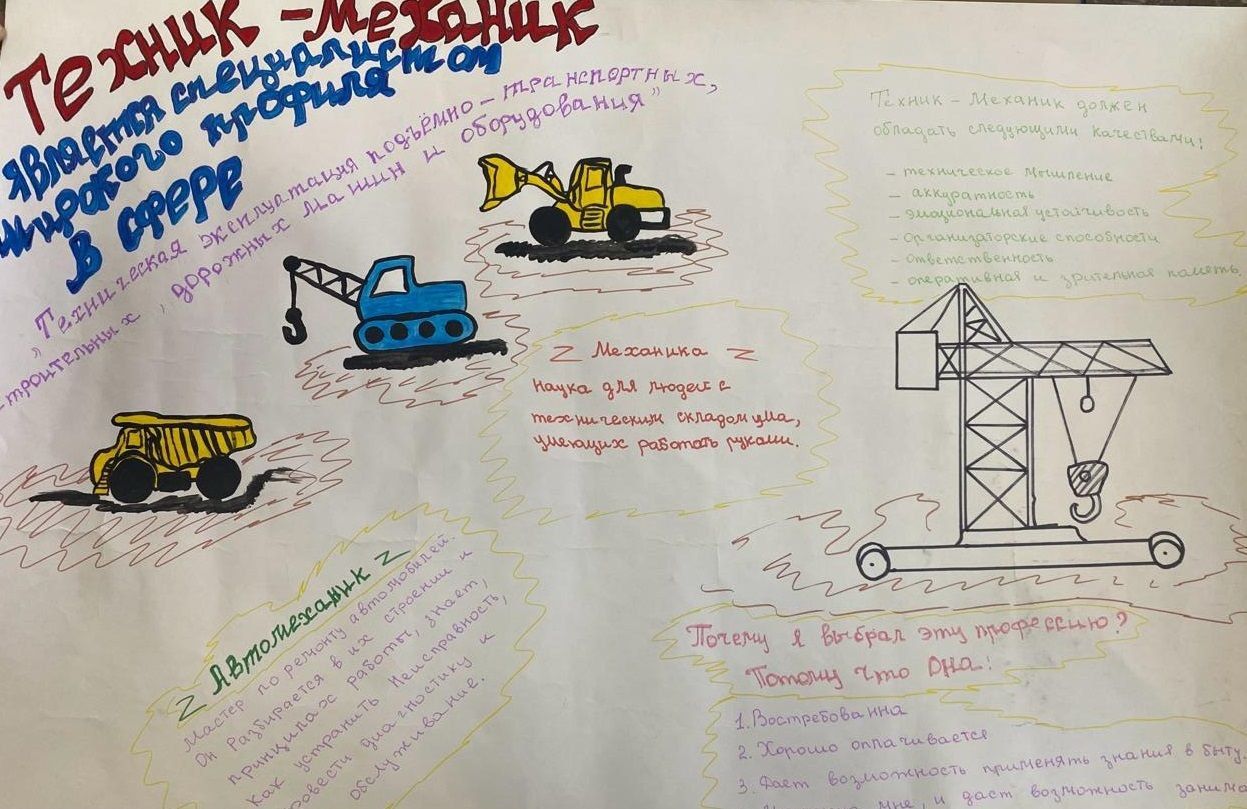 Техник - Механик
является специалистом
широкого профиля
в сфере
„Техническая эксплуатация подъёмно - транспортных,
строительных, дорожных машин и оборудования”
Техник - Механик должен
обладать следующими качествами:
- техническое мышление
- аккуратность
- эмоциональная устойчивость
- организаторские способности
- ответственность
- оперативная и зрительная память.
Механика
наука для людей с
техническим складом ума,
умеющих работать руками.
Автомеханик
Мастер по ремонту автомобилей.
Он разбирается в их строении и
принципах работы, знает,
как устранить неисправность,
провести диагностику и
обслуживание.
Почему я выбрал эту профессию?
Потому что она:
1. Востребованна
2. Хорошо оплачивается
3. Дает возможность применять знания в быту.
мне, и даст возможность занима